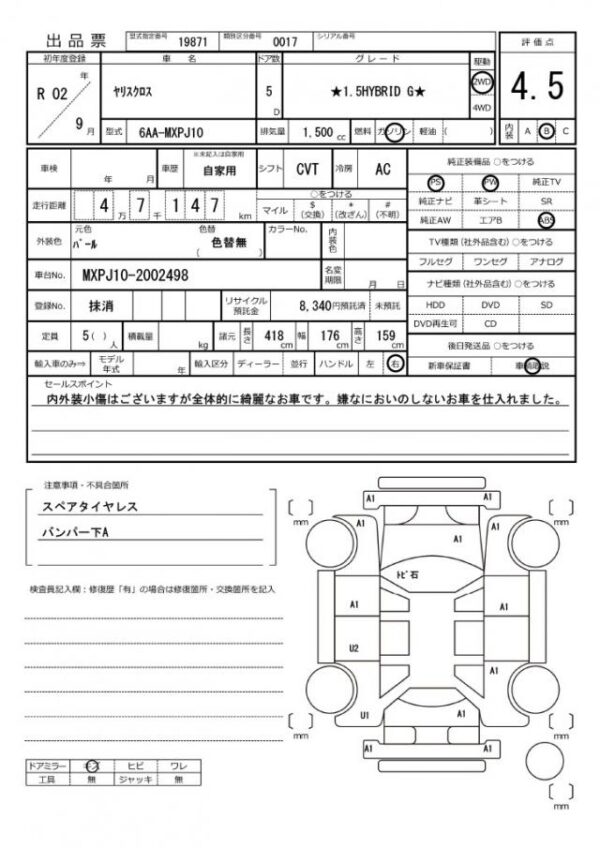 出品票 型式指定番号 19871 類別区分番号 0017 シリアル番号
評価点
初年度登録 車名 ドア数 グレード 駆動
R 02 年 9 月
ヤリスクロス 5 D ★1.5HYBRID G★ 2WD 4WD
4.5
型式 6AA-MXPJ10 排気量 1,500 cc 燃料 ガソリン 軽油 ( )
内装 A B C
車検 年 月 車歴 ※未記入は自家用 自家用 シフト CVT 冷房 AC
純正装備品 ○をつける
PS PW 純正TV
純正ナビ 革シート SR
純正AW エアB ABS
走行距離 4万7千147 km
○をつける
マイル $(交換) *(改ざん) #(不明)
外装色 元色 パール 色替 色替無 ( ) カラーNo. 内装色
TV種類 (社外品含む) ○をつける
フルセグ ワンセグ アナログ
車台No. MXPJ10-2002498 名変期限 月 日
ナビ種類 (社外品含む) ○をつける
HDD DVD SD
DVD再生可 CD
登録No. 抹消 リサイクル預託金 8,340円預託済 未預託
定員 5( )人 積載量 kg 諸元 長さ 418 cm 幅 176 cm 高さ 159 cm
後日発送品 ○をつける
新車保証書
輸入車のみ⇒ モデル年式 年 輸入区分 ディーラー 並行 ハンドル 左 右
セールスポイント
内外装小傷はございますが全体的に綺麗なお車です。嫌なにおいのしないお車を仕入れました。
注意事項・不具合箇所
スペアタイヤレス
バンパー下A
検査員記入欄：修復歴「有」の場合は修復箇所・交換箇所を記入
ドアミラー キズ ヒビ ワレ
工具 無 ジャッキ 無
A1 A1
mm mm
A1 A1
A1
トビ石
A1 A1
U2
A1
U1 A1
A1 A1
mm mm
mm